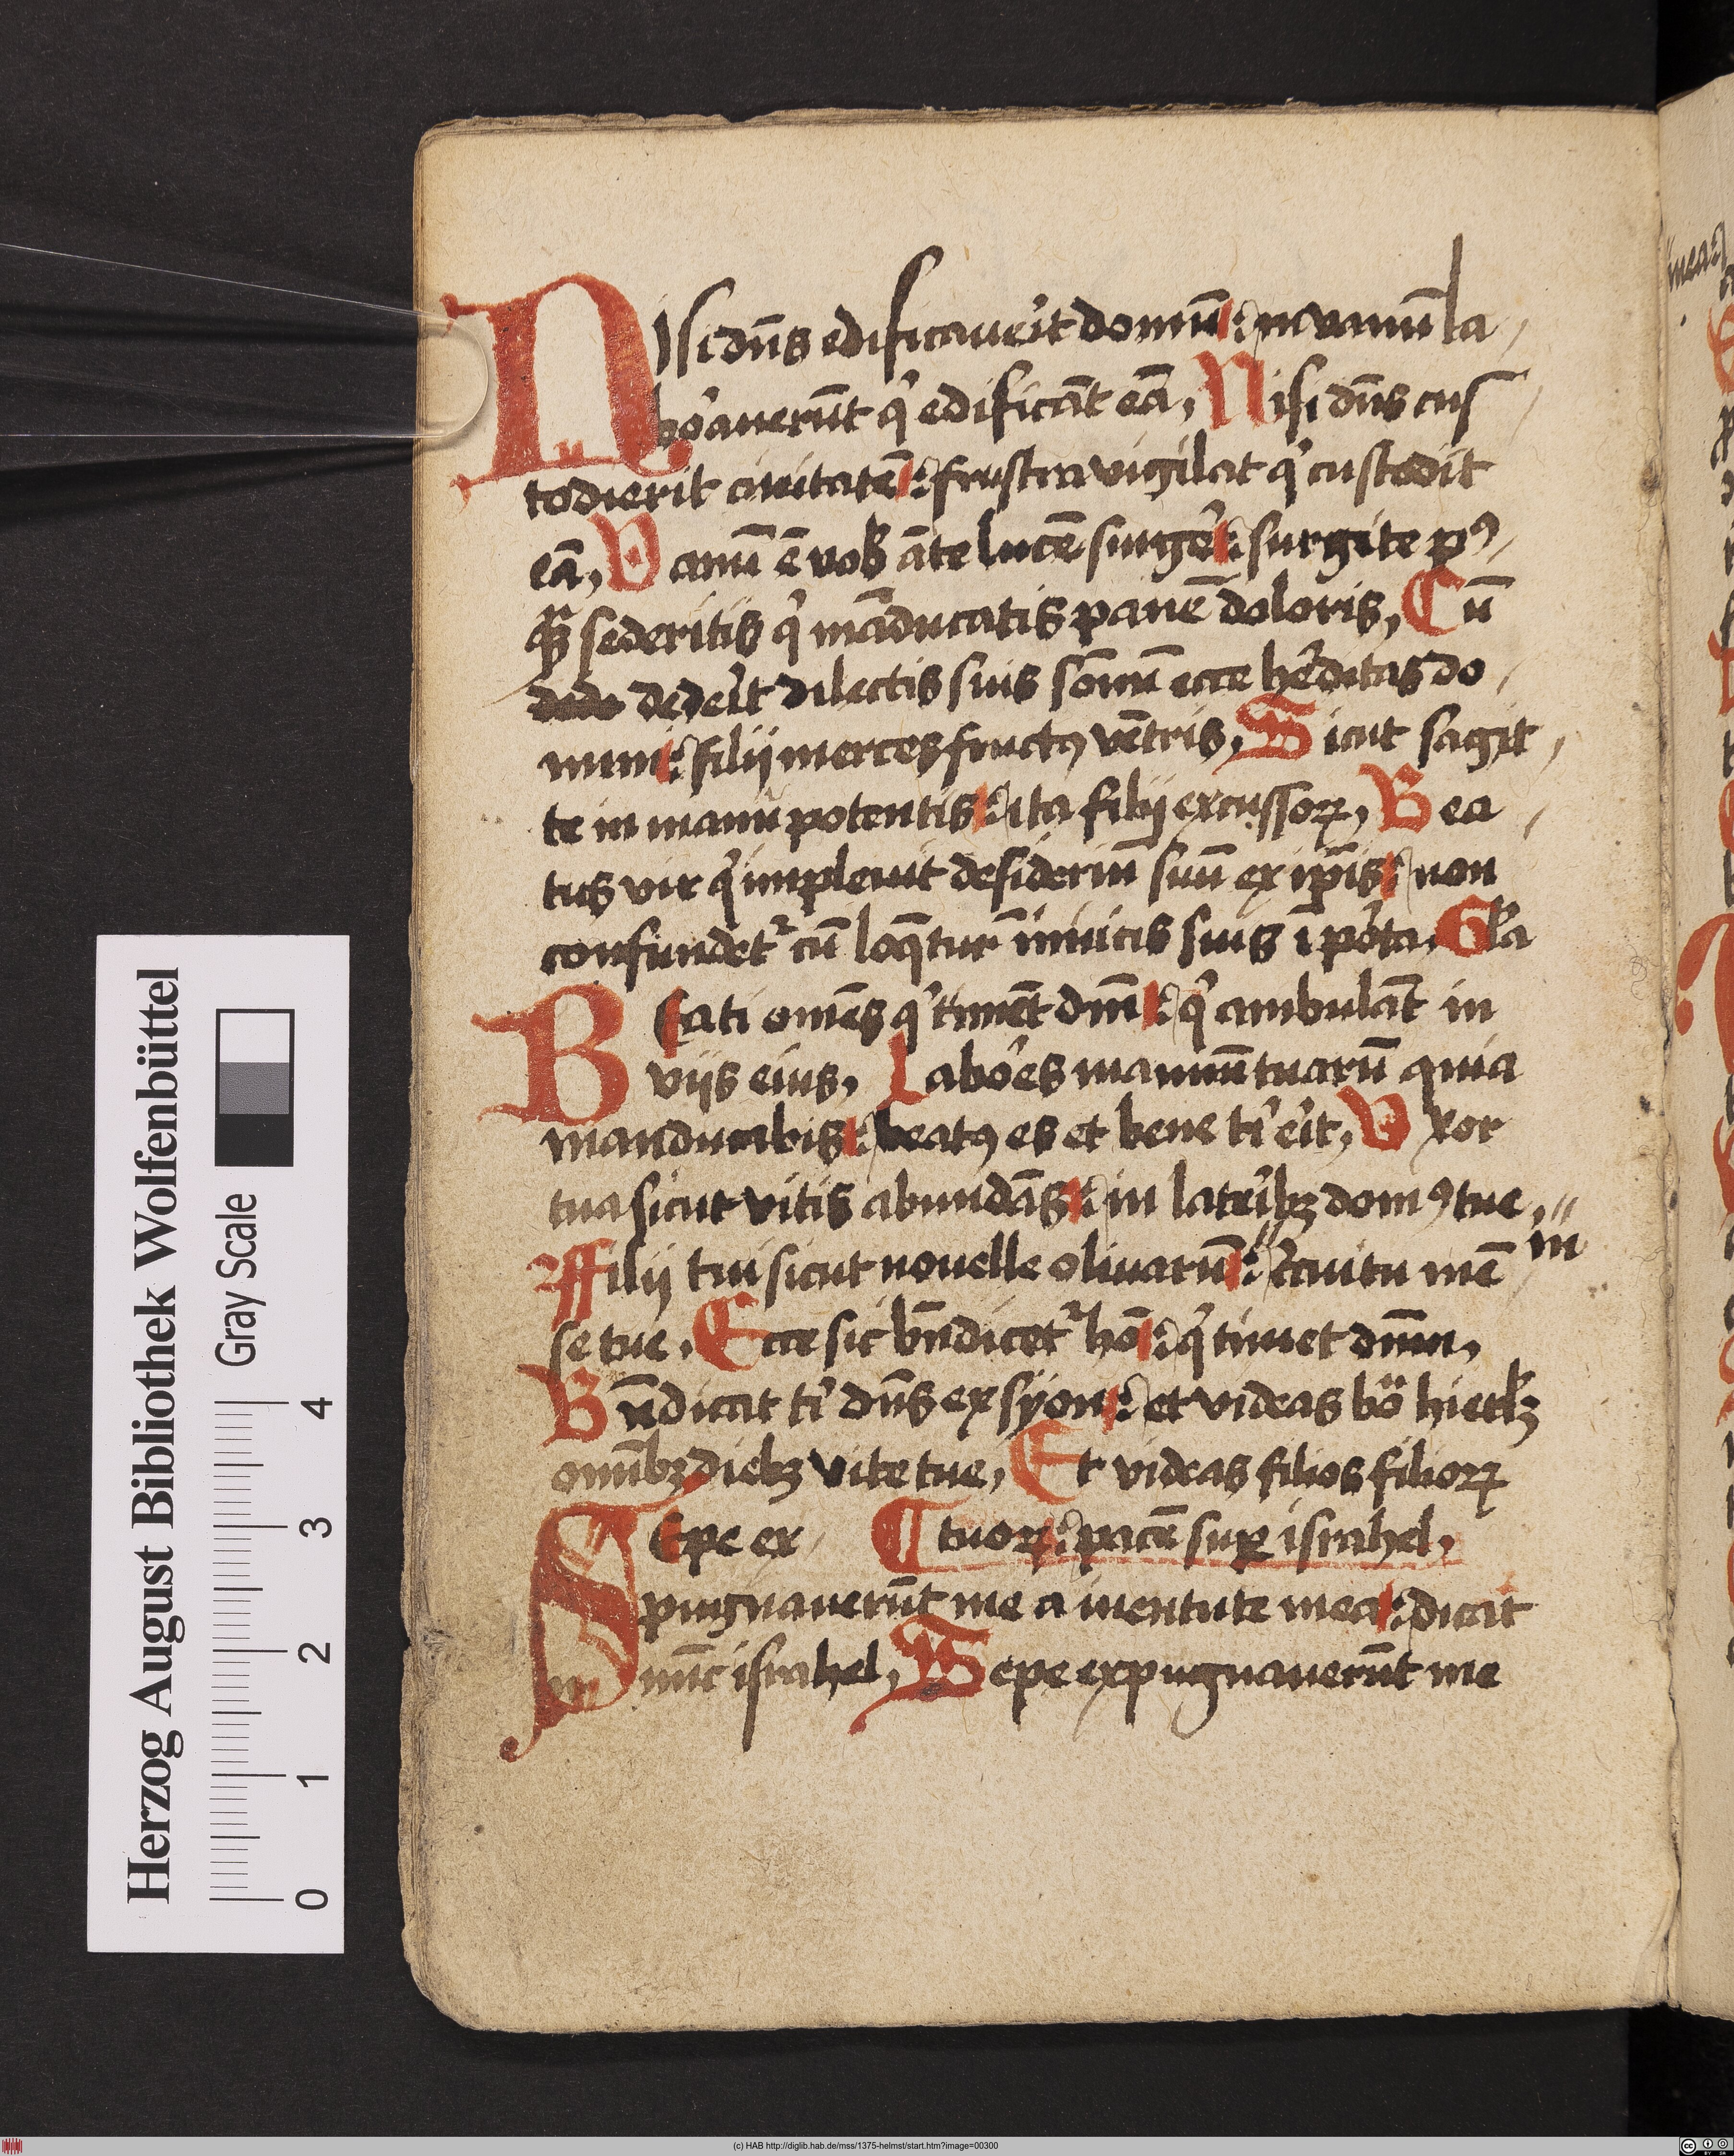 NIsi dn̄s edificauerit domū: in vanum̄ la
bo'auerūt q' edificāt eā, Nisi dn̄s cus
todierit ciuitatē: frustra vigilat q' custodit
eā, Vanū ē vob̄ āte lucē surge': surgite pꝰ
qᷓꝫ sederitis q' māducatis panē doloris, Cū
dede dede'it dilectis suis somnū ecce he'ditas do
mini: filij merces fructꝰ vētris, Sicut sagit
te in manu potentis: ita filij excussoꝝ, Bea
tus vir q' impleuit desideriū suū ex ip̄is: non
confundet᷑ cū loq̄tur īnimicis suis ī po'ta, Gl'a
Beati omēs q' timēt dn̄m: q' ambulāt in
viis eius, Labo'es manuum̄ tuarū quia
manducabis: beatꝰ es et bene ti' e'it, Vxor
tua sicut vitis abundās: in late'ibꝫ domꝰ tue,
Filij tui sicut nouelle oliuarū: i' cuitu mē
in
se tue, Ecce sic bn̄dicet᷑ ho': q' timet dn̄m,
Bn̄dicat ti' dn̄s ex syon: et videas bo' hierl'ꝫ
omībꝫ diebꝫ vite tue, Et videas filios filioꝝ
Sepe ex tuoꝝ: pacē suꝑ israhel,
pugnauerūt me a iuentute mea: dicat
nūc israhel, Sepe expugnauerūt me
Herzog August Bibliothek Wolfenbüttel
Gray Scale
0 1 2 3 4
(c) HAB http://diglib.hab.de/mss/1375-helmst/start.htm?image=00300